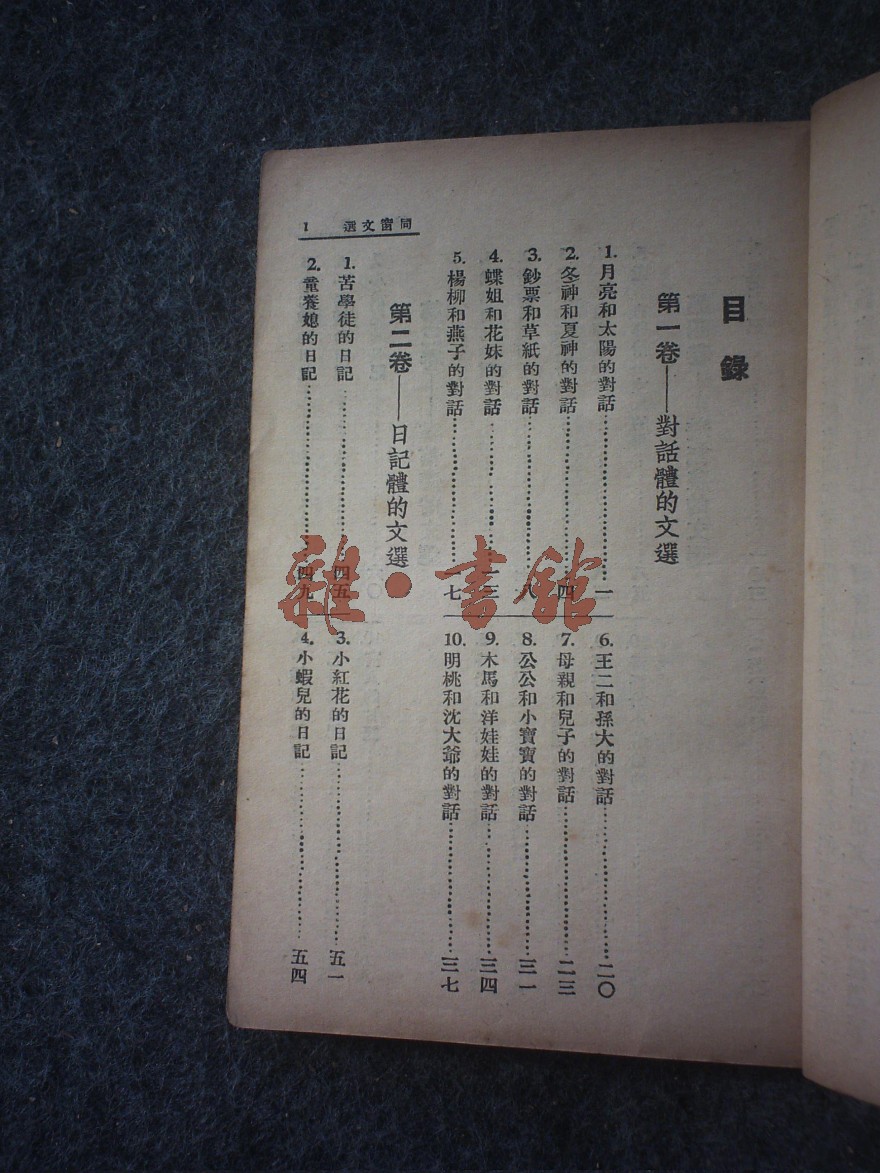 同窗文選 1
目錄
第一卷——對話體的文選
1. 月亮和太陽的對話……一
2. 冬神和夏神的對話……四
3. 鈔票和草紙的對話……八
4. 蝶姐和花妹的對話……一三
5. 楊柳和燕子的對話……一七
6. 王二和孫大的對話……二〇
7. 母親和兒子的對話……二三
8. 公公和小寶寶的對話……三一
9. 木馬和洋娃娃的對話……三四
10. 明桃和沈大爺的對話……三七
第二卷——日記體的文選
1. 苦學徒的日記……四五
2. 童養媳的日記……四九
3. 小紅花的日記……五一
4. 小蝦兒的日記……五四
雜·書館